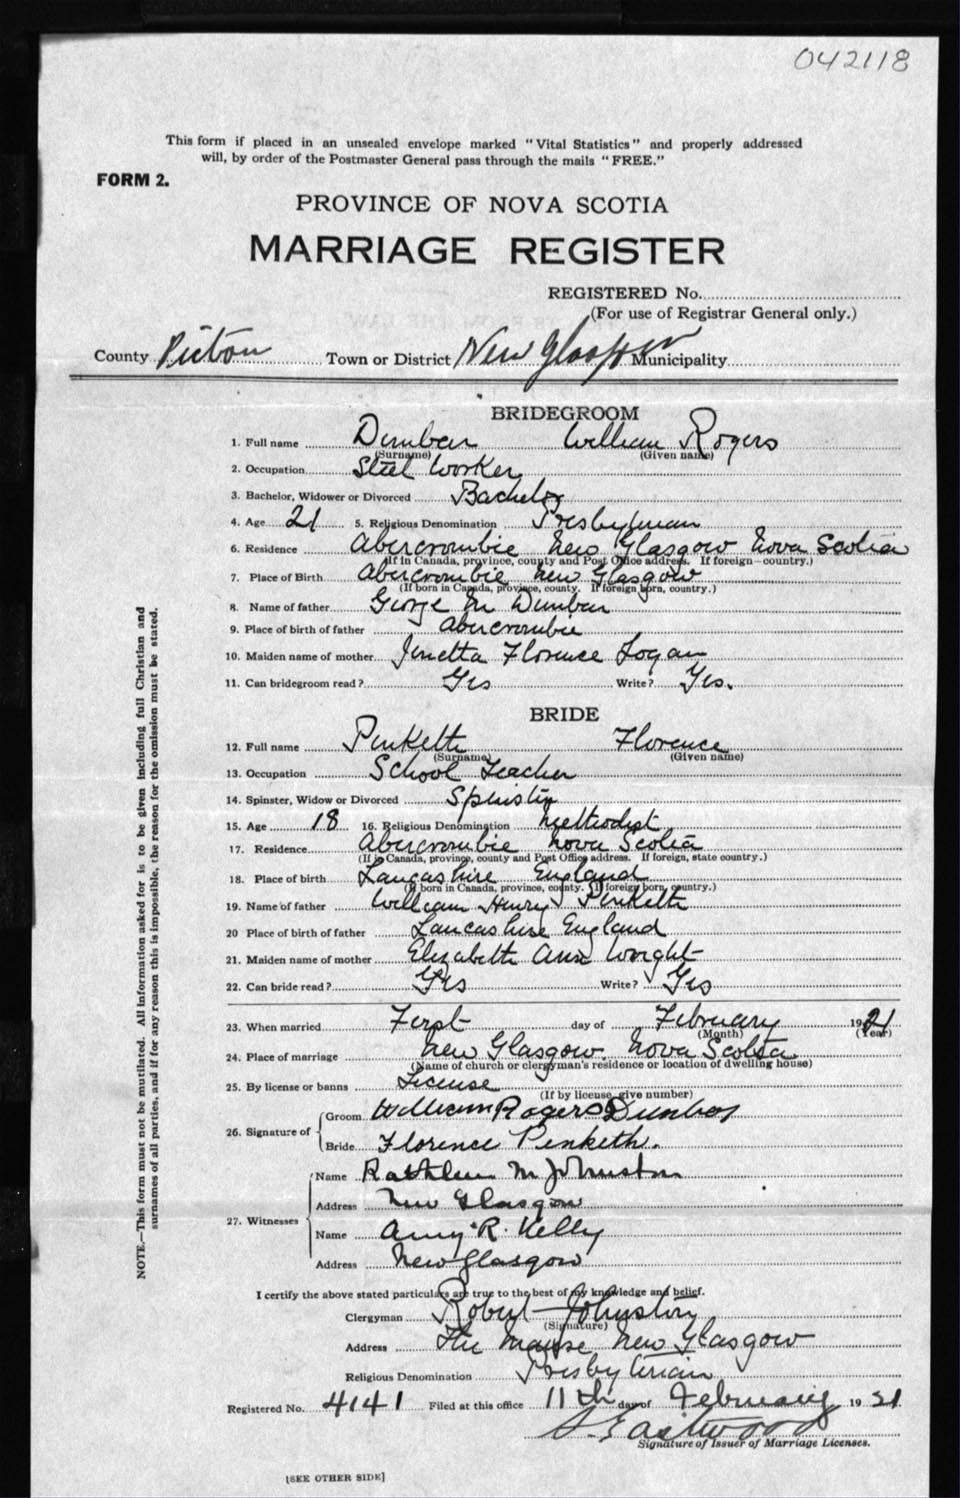 042118
This form if placed in an unsealed envelope marked "Vital Statistics" and properly addressed
will, by order of the Postmaster General pass through the mails "FREE."
FORM 2.
PROVINCE OF NOVA SCOTIA
MARRIAGE REGISTER
REGISTERED No.
(For use of Registrar General only.)
County Pictou Town or District New Glasgow Municipality
BRIDEGROOM
1. Full name Dunbar William Rogers
(Surname) (Given name)
2. Occupation Steel Worker
3. Bachelor, Widower or Divorced Bachelor
4. Age 21 5. Religious Denomination Presbyterian
6. Residence Abercrombie New Glasgow Nova Scotia
(If in Canada, province, county and Post Office address. If foreign—country.)
7. Place of Birth Abercrombie New Glasgow
(If born in Canada, province, county. If foreign born, country.)
8. Name of father George M Dunbar
9. Place of birth of father Abercrombie
10. Maiden name of mother Jenetta Florence Logan
11. Can bridegroom read? Yes Write? Yes.
BRIDE
12. Full name Penketh Florence
(Surname) (Given name)
13. Occupation School Teacher
14. Spinster, Widow or Divorced Spinster
15. Age 18 16. Religious Denomination Methodist
17. Residence Abercrombie Nova Scotia
(If in Canada, province, county and Post Office address. If foreign, state country.)
18. Place of birth Lancashire England
(If born in Canada, province, county. If foreign born, country.)
19. Name of father William Henry Penketh
20 Place of birth of father Lancashire England
21. Maiden name of mother Elizabeth Ann Wright
22. Can bride read? Yes Write? Yes
23. When married First day of February 1921
(Month) (Year)
24. Place of marriage New Glasgow. Nova Scotia
(Name of church or clergyman's residence or location of dwelling house)
25. By license or banns License
(If by license, give number)
26. Signature of Groom William Rogers Dunbar
Bride Florence Penketh.
27. Witnesses
Name Kathleen M Johnston
Address New Glasgow
Name Amy R. Kelly
Address New Glasgow
I certify the above stated particulars are true to the best of my knowledge and belief.
Clergyman Robert Johnston
(Signature)
Address The Manse New Glasgow
Religious Denomination Presbyterian
Registered No. 4141 Filed at this office 11th day of February 1921
Eastwood
Signature of Issuer of Marriage Licenses.
[SEE OTHER SIDE]
NOTE.—This form must not be mutilated. All information asked for is to be given including full Christian and
surnames of all parties, and if for any reason this is impossible, the reason for the omission must be stated.